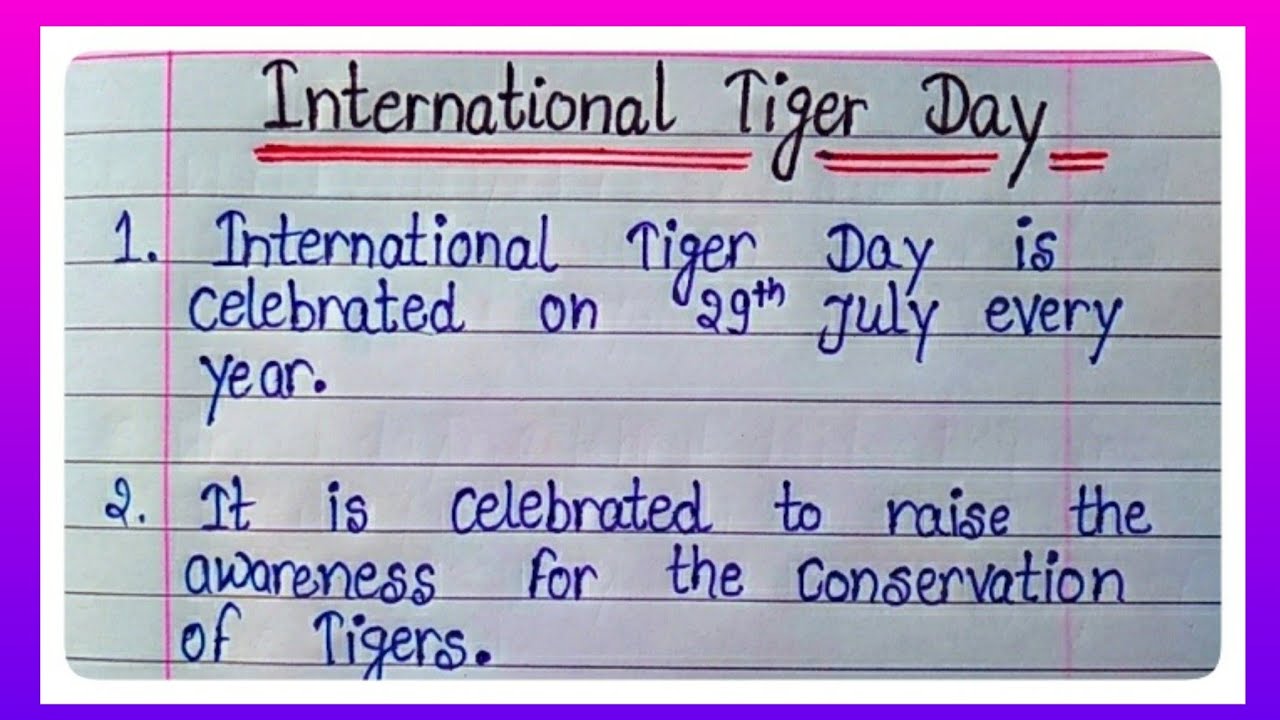 International Tiger Day
1. International Tiger Day is
celebrated on 29th July every
year.
2. It is celebrated to raise the
awareness for the conservation
of Tigers.